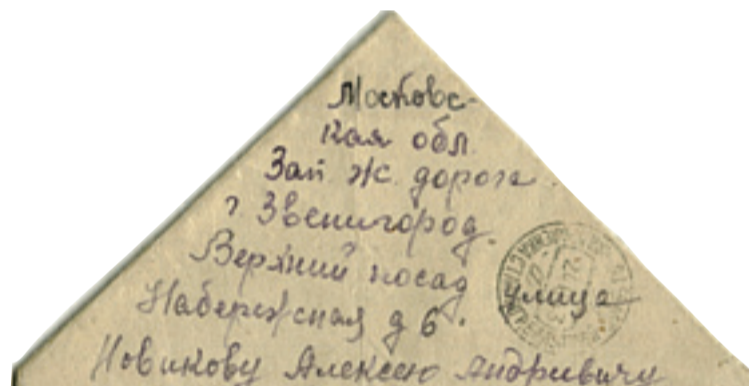 Московс-
кая обл.
Зап ж. дорога
г Звенигород.
Верхний посад улица
Набережная д 6.
Новикову Алексею Андриевичу